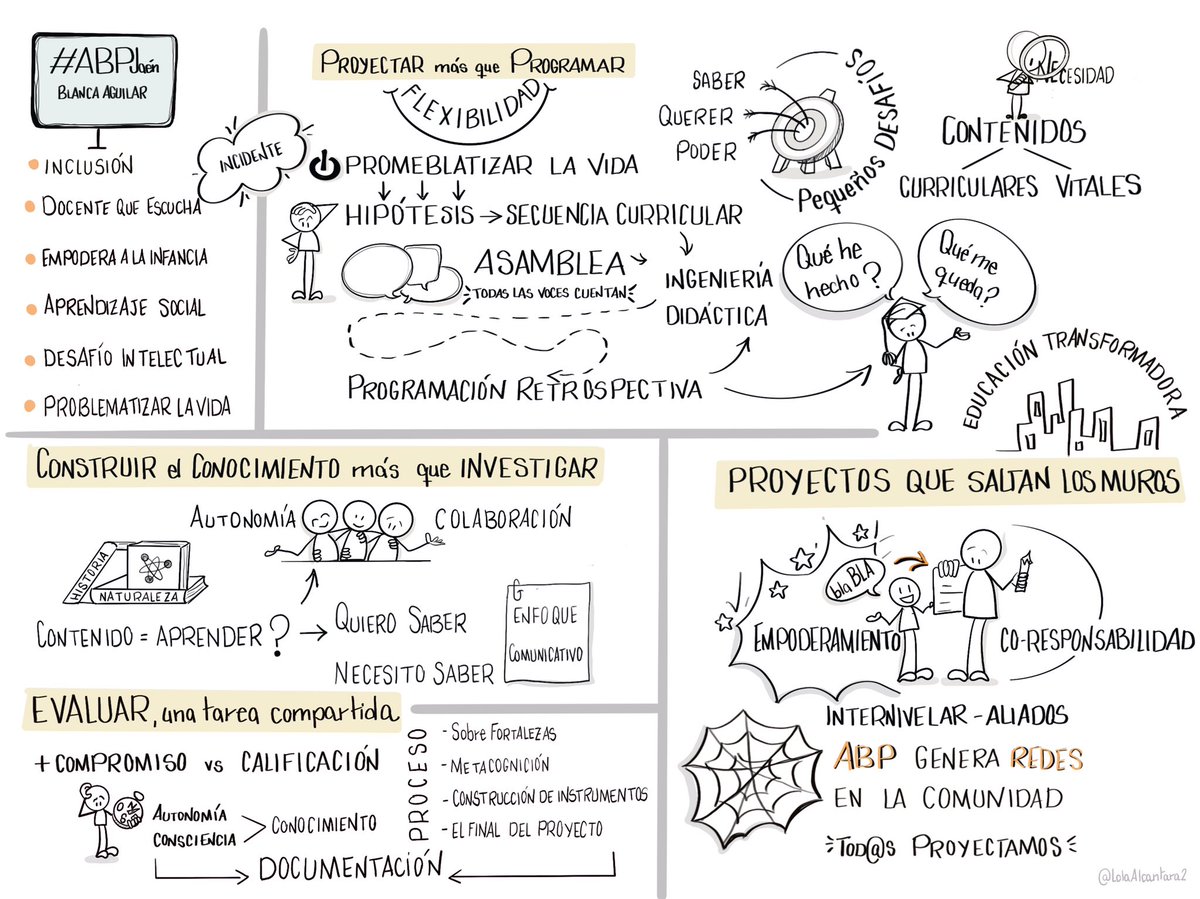 #ABPJaén
BLANCA AGUILAR
INCLUSIÓN
DOCENTE QUE ESCUCHA
EMPODERA A LA INFANCIA
APRENDIZAJE SOCIAL
DESAFÍO INTELECTUAL
PROBLEMATIZAR LA VIDA
INCIDENTE
PROYECTAR más que PROGRAMAR
FLEXIBILIDAD
PROMEBLATIZAR LA VIDA
HIPÓTESIS → SECUENCIA CURRICULAR
ASAMBLEA
TODAS LAS VOCES CUENTAN
INGENIERÍA
DIDÁCTICA
PROGRAMACIÓN RETROSPECTIVA
SABER
QUERER
PODER
Pequeños DESAFÍOS
CONTENIDOS
CURRICULARES VITALES
Qué he
hecho?
Qué me
queda?
EDUCACIÓN TRANSFORMADORA
CONSTRUIR el CONOCIMIENTO más que INVESTIGAR
AUTONOMÍA
COLABORACIÓN
HISTORIA
NATURALEZA
CONTENIDO = APRENDER ? → QUIERO SABER
NECESITO SABER
ENFOQUE
COMUNICATIVO
EVALUAR, una tarea compartida
+ COMPROMISO vs CALIFICACIÓN
AUTONOMÍA
CONSCIENCIA
CONOCIMIENTO
DOCUMENTACIÓN
PROCESO
- Sobre FORTALEZAS
- METACOGNICIÓN
- CONSTRUCCIÓN DE INSTRUMENTOS
- EL FINAL DEL PROYECTO
PROYECTOS QUE SALTAN LOS MUROS
bla BLA
EMPODERAMIENTO
CO-RESPONSABILIDAD
INTERNIVELAR - ALIADOS
ABP GENERA REDES
EN LA COMUNIDAD
TOD@S PROYECTAMOS
@LolaAlcantara2